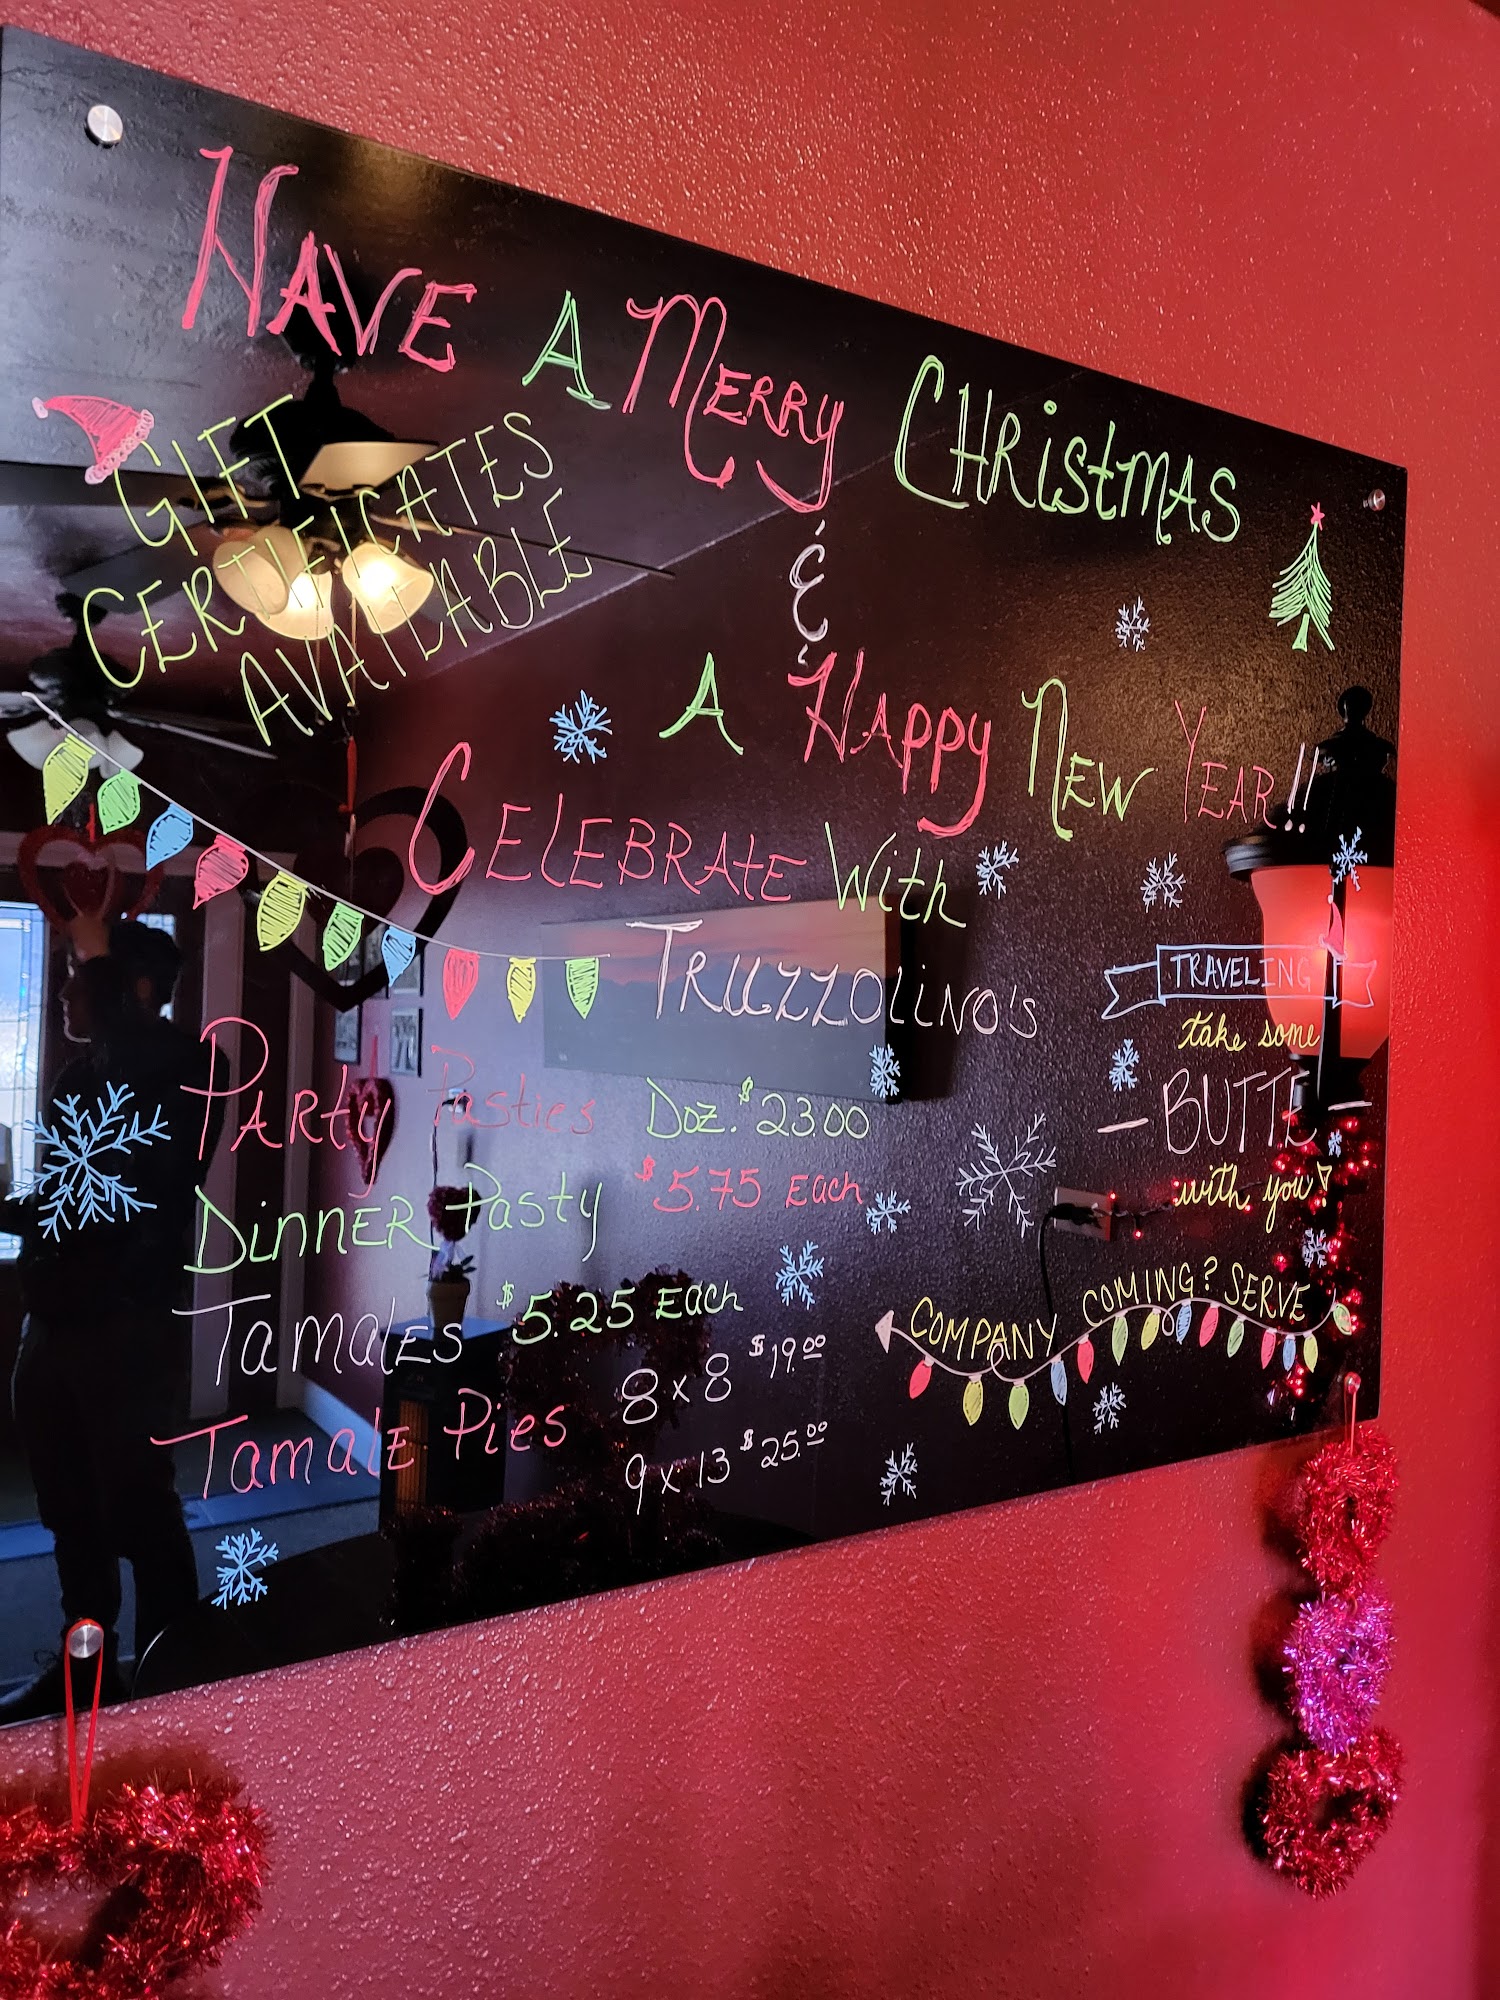 HAVE A MERRY CHRISTMAS
&
A HAPPY NEW YEAR!!
GIFT
CERTIFICATES
AVAILABLE
CELEBRATE With
TRUZZOLINO'S
PARTY Pasties Doz. $23.00
DINNER Pasty $5.75 EACH
TAMALES $5.25 EACH
TAMALE Pies 8x8 $19.00
9x13 $25.00
TRAVELING
take some
- BUTTE -
with you!
COMPANY COMING? SERVE